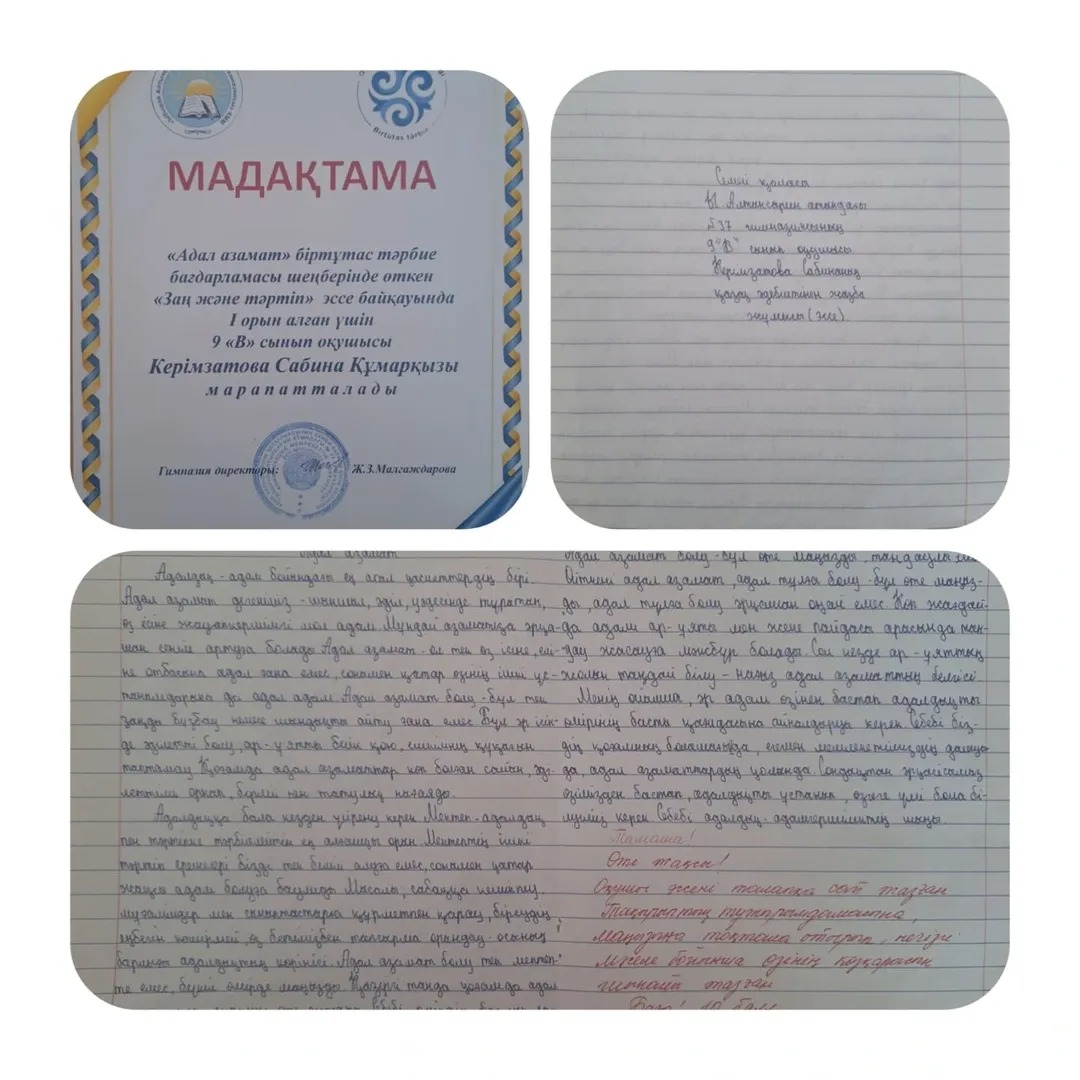 Birtutas tárbıe
МАДАҚТАМА
«Адал азамат» біртұтас тәрбие
бағдарламасы шеңберінде өткен
«Заң және тәртіп» эссе байқауында
І орын алған үшін
9 «В» сынып оқушысы
Керімзатова Сабина Құмарқызы
марапатталады
Гимназия директоры:
Ж.З.Малгаждарова
Семей қаласы
Ы. Алтынсарин атындағы
№37 гимназиясының
9 "В" сынып оқушысы
Керімзатова Сабинаның
қазақ әдебиетінен жазба
жұмысы (эссе).
Адал азамат
Адалдық - адам бойындағы ең асыл қасиеттердің бірі.
Адал азамат дегеніміз - шыншыл, әділ, уәдесінде тұратын,
өз ісіне жауапкершілігі мол адам. Мұндай азаматқа әрқа-
шан сенім артуға болады. Адал азамат - ол тек өз ісіне, елі-
не отбасына адал ғана емес, сонымен қатар өзінің ішкі це-
ге адал адам. Адал азамат болу - бұл тек
заңды бұзбау немесе шындықты айту ғана емес. Бұл әр ісің-
де әділетті болу, ар-ұятты биік қою,
құқығын
таптамау. Қоғамда адал азаматтар көп болған сайын, әді-
леттілік орнап, бірлік пен татулық нығаяды.
Адалдыққа бала кезден үйрену керек. Мектеп - адалдық
пен тәртіпке тәрбиелейтін ең алғашқы орын. Мектептің ішкі
тәртіп ережелері бізді тек білім алуға емес, сонымен қатар
жақсы адам болуға баулиды. Мысалы, сабаққа кешікпеу,
мұғалімдер мен сыныптастарға құрметпен қарау, біреудің
еңбегін көшірмей, өз бетімізбен тапсырма орындау - осының
барлығы адалдықтың көрінісі. Адал азамат болу тек мектеп-
те емес, бүкіл өмірде маңызды. Қазіргі таңда қоғамда адал
Адал азамат болу - бұл өте маңызды, таңдаулы
Өйткені адал азамат, адал тұлға болу - бұл өте маңыз-
ды, адал тұлға болу әрқашан оңай емес. Көп жағдай-
да адам ар-ұяты мен жеке пайдасы арасында таң-
дау жасауға мәжбүр болады. Сол кезде ар-ұяттың
жолын таңдай білу - нағыз адал азаматтың белгісі.
Менің ойымша, әр адам өзінен бастап адалдықты
өмірінің басты қағидасына айналдыруы керек. Себебі біз-
дің қоғамның болашағы да, егемен мемлекетіміздің дамуы
да, адал азаматтардың қолында. Сондықтан әрқайсымыз
өзімізден бастап, адалдықты ұстанып, өзгеге үлгі бола бі-
луіміз керек. Себебі адалдық - адамгершіліктің шыңы.
Тамаша!
Өте жақсы!
Оқушы эссені талапқа сай жазған
Тақырыптың тұжырымдамасына,
маңызына тоқтала отырып, негізгі
мәселе бойынша өзінің көзқарасын
шынайы жазған
Баға: 10 балл